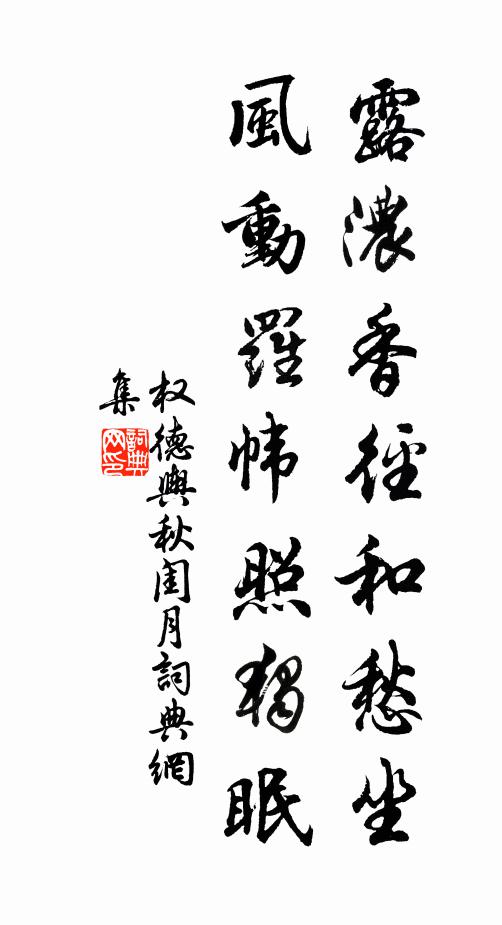 露濃香徑和愁坐
風動羅幃照獨眠
权德輿秋閨月詞典網
集
詞典
网印